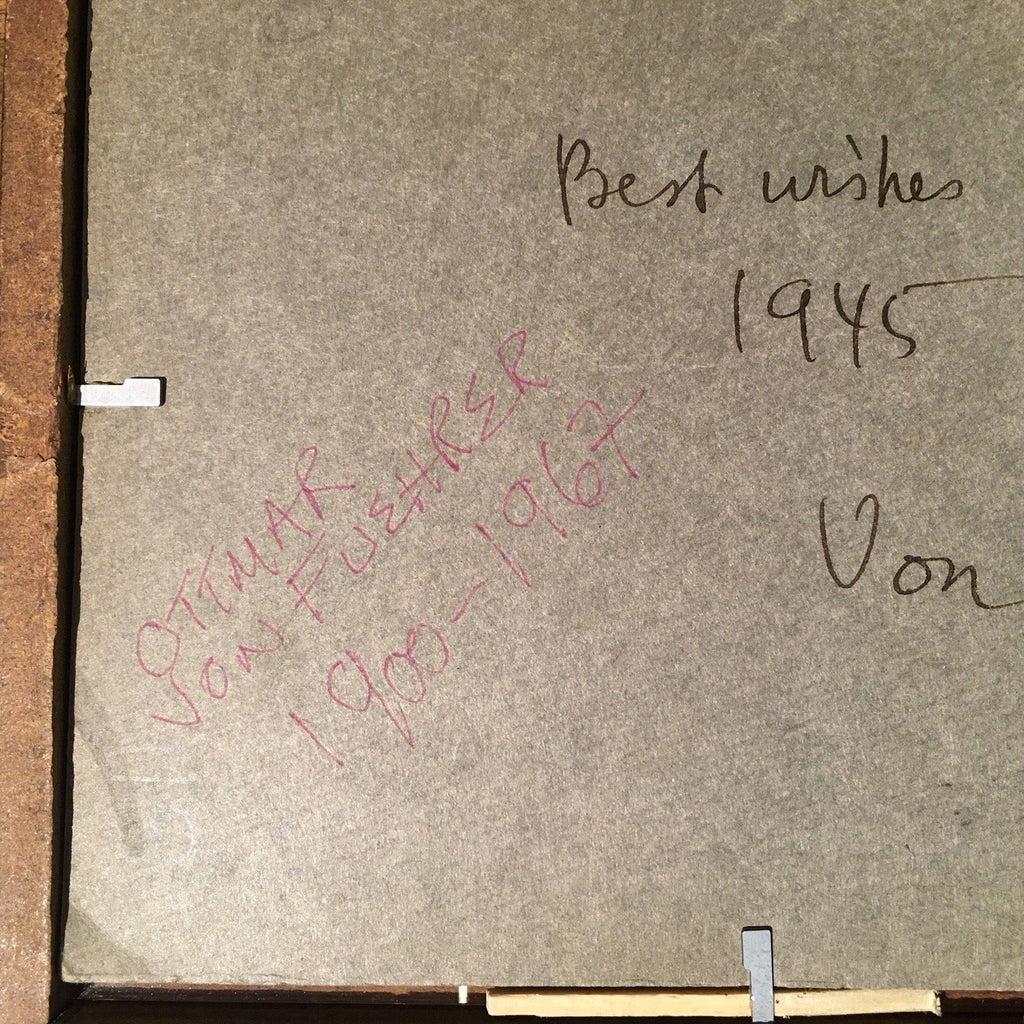 Best wishes
1945
Von
OTTMAR
VON FUEHRER
1900-1967